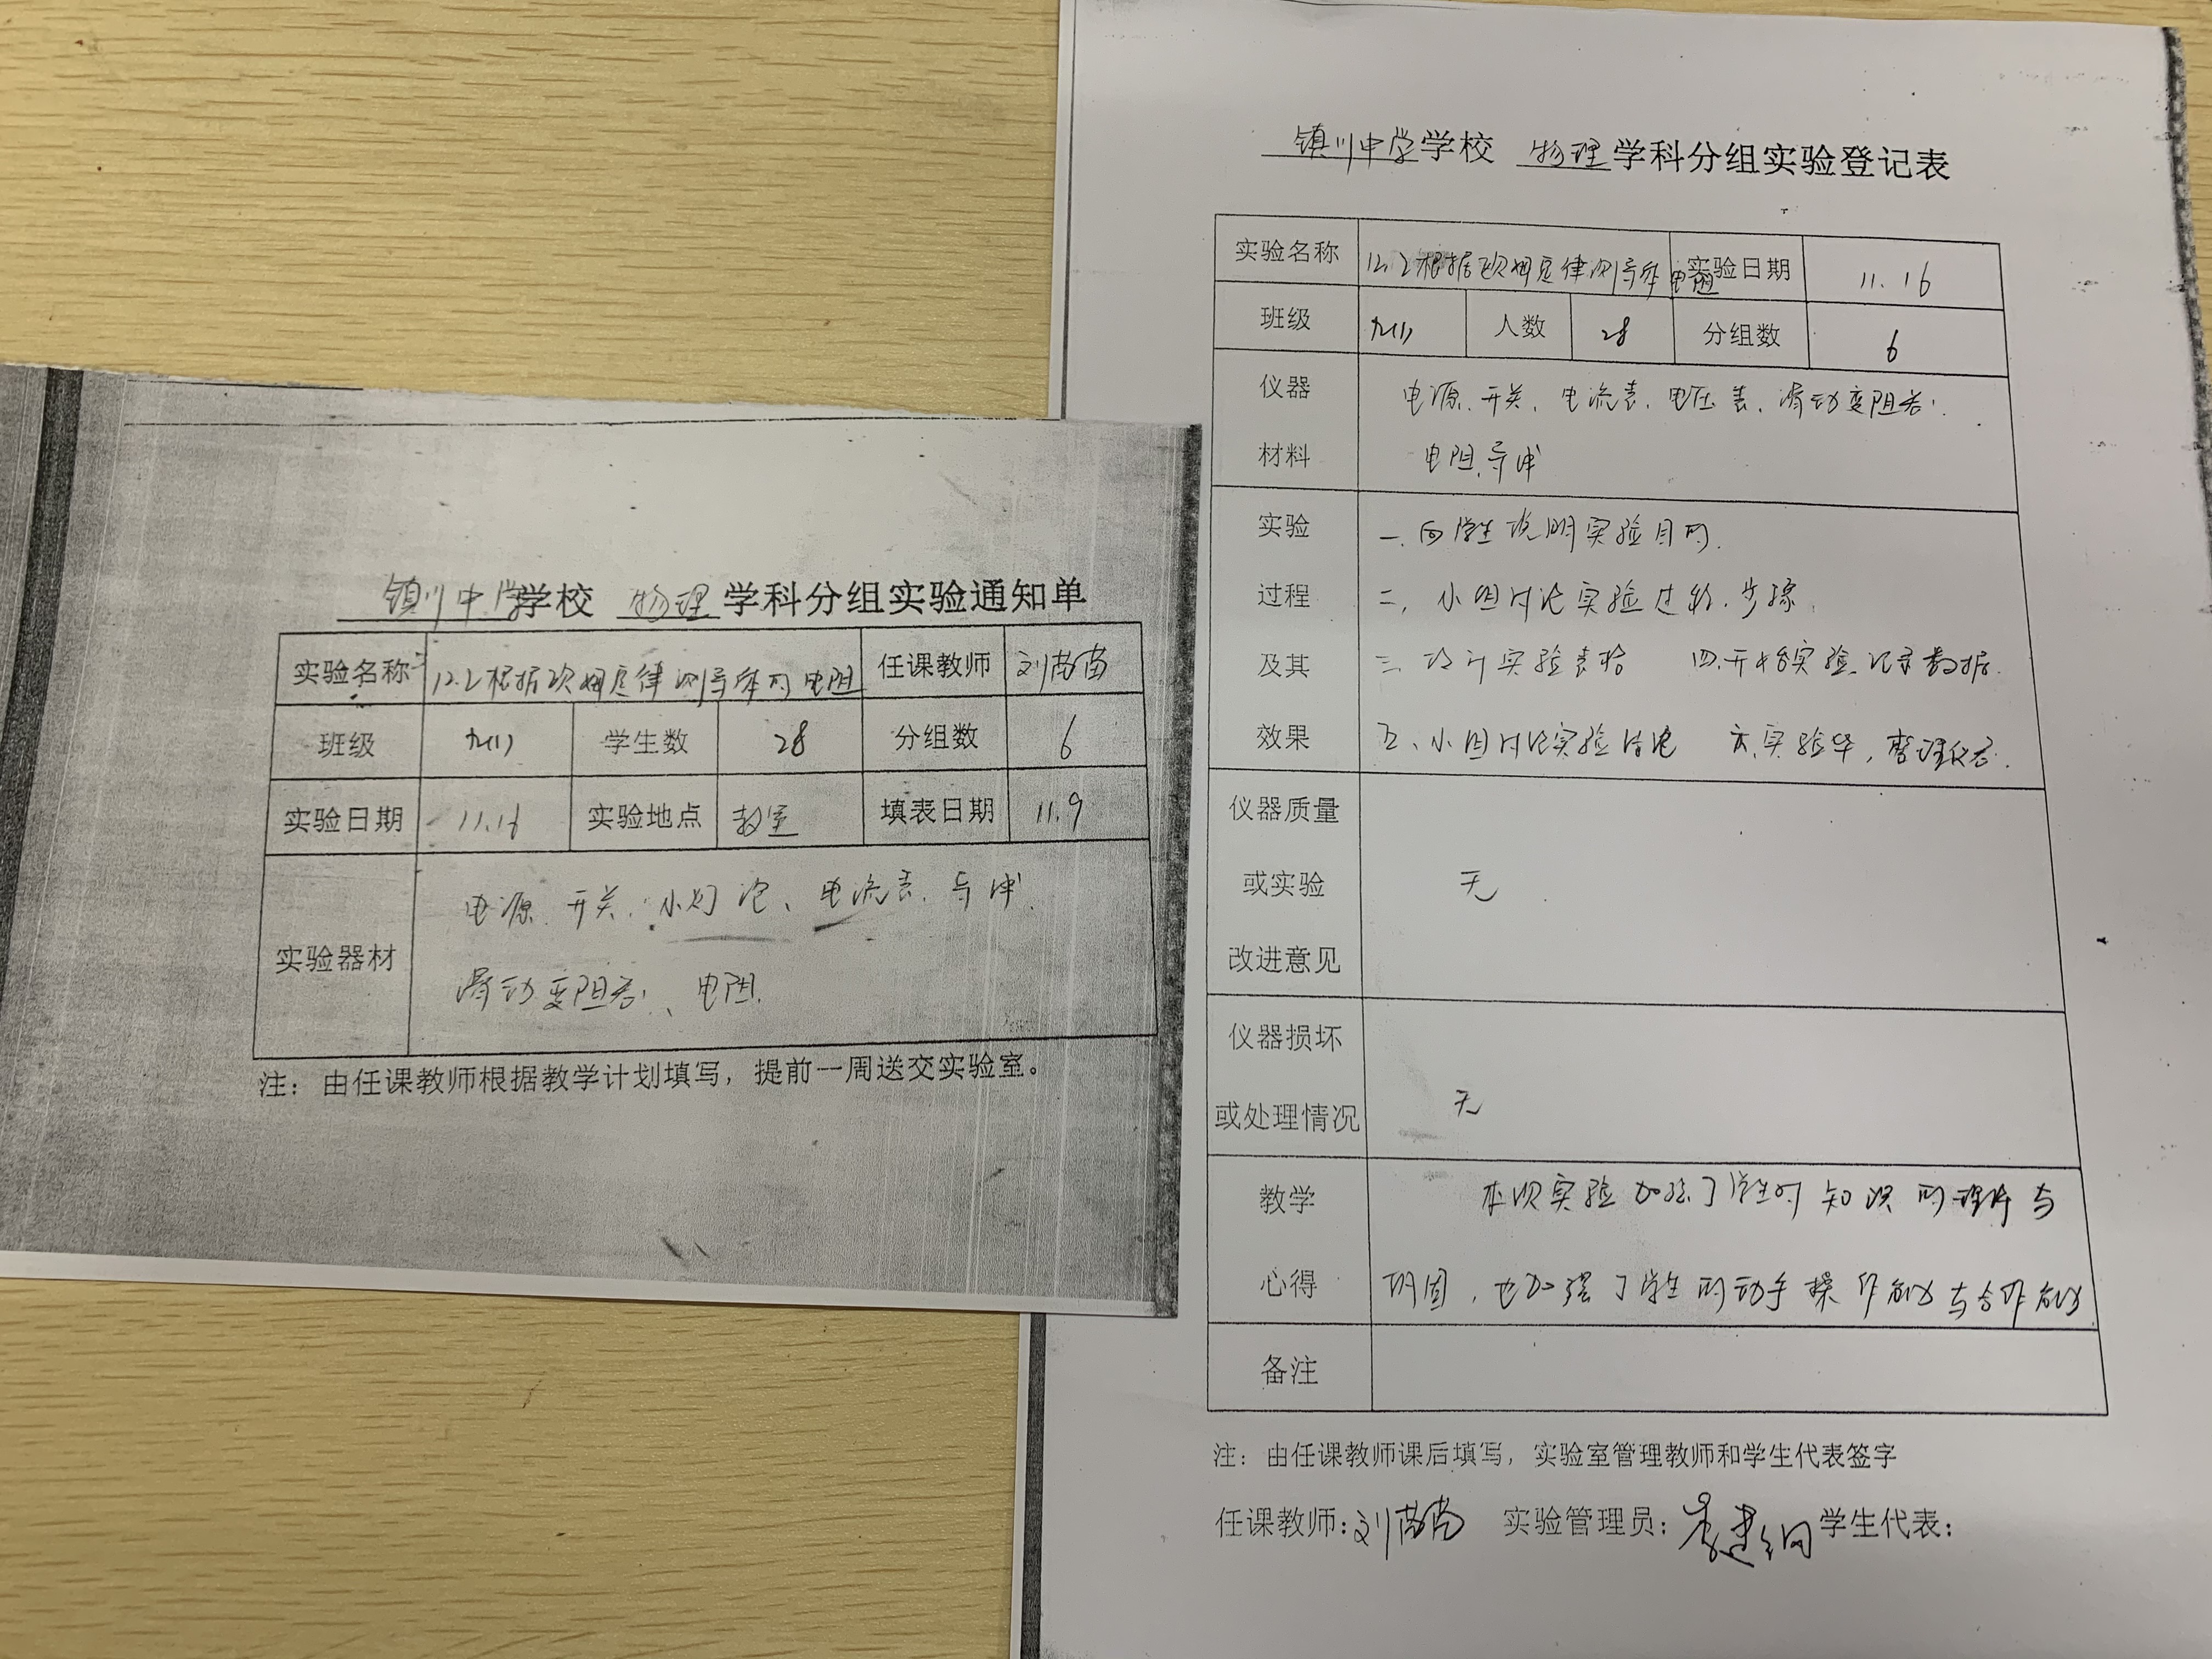 镇川中学学校 物理学科分组实验通知单
实验名称 12.2根据欧姆定律测导体的电阻 任课教师 刘苗苗
班级 九(1) 学生数 28 分组数 6
实验日期 11.16 实验地点 教室 填表日期 11.9
实验器材 电源、开关、小灯泡、电流表、导线、
滑动变阻器、电阻.
注：由任课教师根据教学计划填写，提前一周送交实验室。
镇川中学学校 物理学科分组实验登记表
实验名称 12.2根据欧姆定律测导体电阻 实验日期 11.16
班级 九(1) 人数 28 分组数 6
仪器 电源、开关、电流表、电压表、滑动变阻器、
材料 电阻、导线
实验 一、向学生说明实验目的.
过程 二、小组讨论实验过程、步骤.
及其 三、设计实验表格 四、开始实验、记录数据.
效果 五、小组讨论实验结论 六、实验毕，整理仪器.
仪器质量
或实验 无
改进意见
仪器损坏
或处理情况 无
教学 本次实验加强了学生对知识的理解与
心得 巩固，也加强了学生的动手操作能力与合作能力
备注
注：由任课教师课后填写，实验室管理教师和学生代表签字
任课教师：刘苗苗 实验管理员： 学生代表：